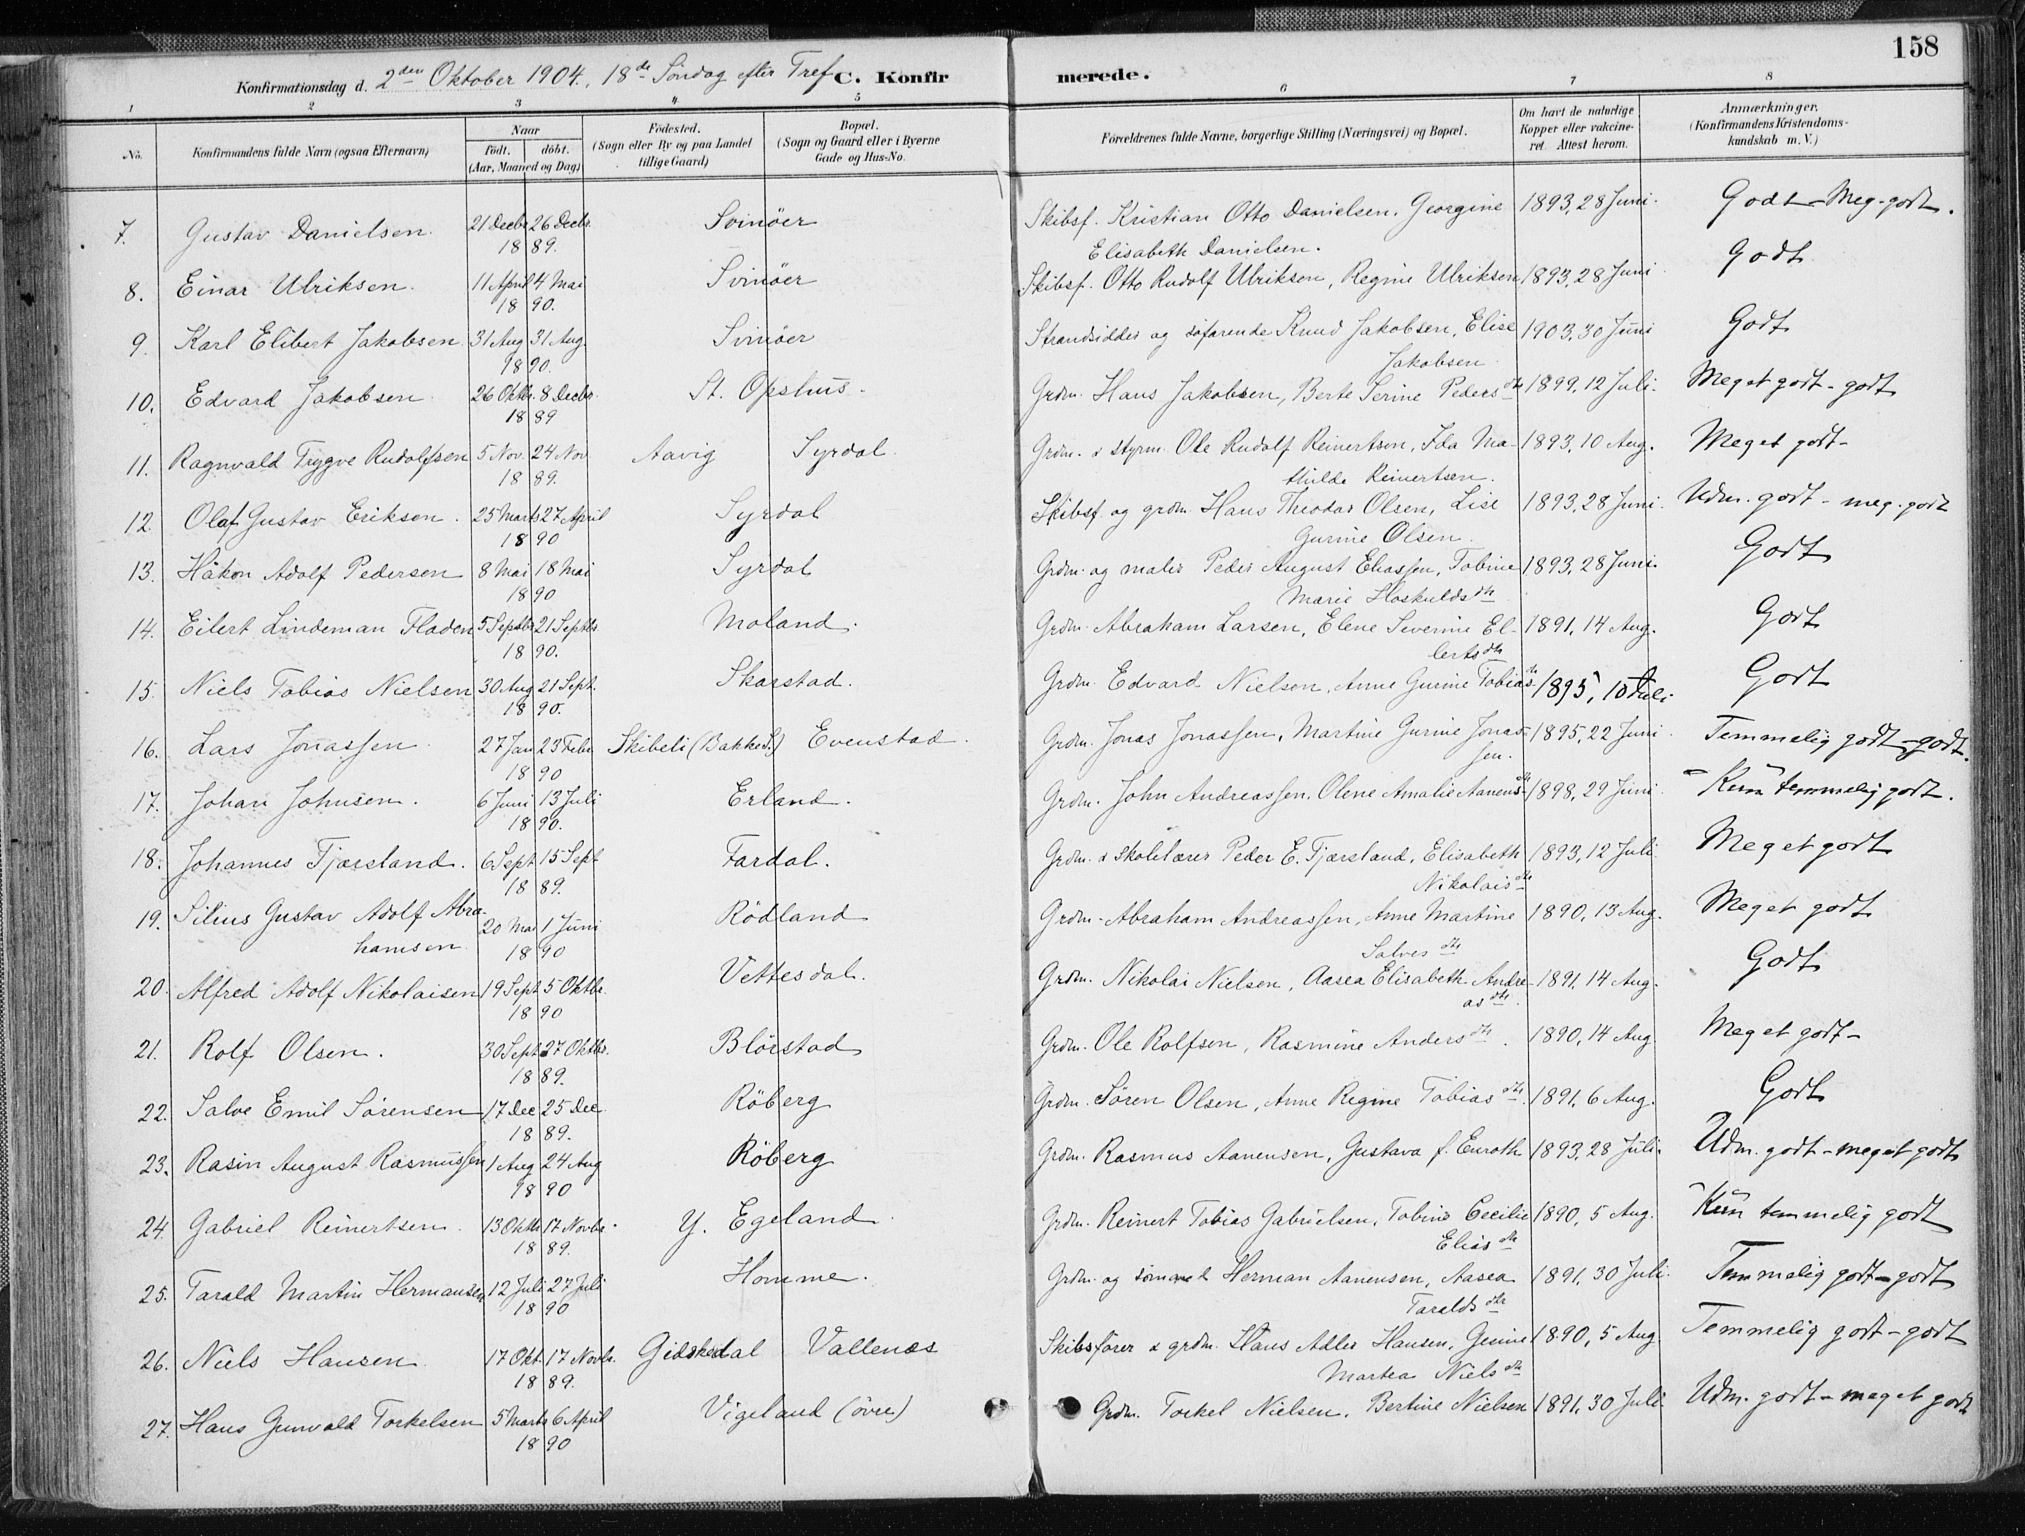 158
Konfirmationsdag d. 2den Oktober 1904. 18de Søndag efter Tref. C. Konfirmerede.
1 2 3 4 5 6 7 8
No. Konfirmandens fulde Navn (ogsaa Efternavn) Naar født. døbt. (Aar, Maaned og Dag) Fødested. (Sogn eller By og paa Landet tillige Gaard) Bopæl. (Sogn og Gaard eller i Byerne Gade og Hus-No. Forældrenes fulde Navne, borgerlige Stilling (Næringsvei) og Bopæl. Om havt de naturlige Kopper eller vakcineret. Attest herom. Anmærkninger. (Konfirmandens Kristendomskundskab m. V.)
7. Gustav Danielsen. 21 Decbr 26 Decbr. 1889. Svinöer Skibsf. Kristian Otto Danielsen. Georgine Elisabeth Danielsen. 1893, 28 Juni. Godt - Meg. godt.
8. Einar Ulriksen. 11 April 4 Mai 1890. Svinöer Skibsf. Otto Rudolf Ulriksen, Regine Ulriksen 1893, 28 Juni Godt
9. Karl Elibert Jakobsen 31 Aug 31 Aug. 1890. Svinöer Strandsidder og söfarende Knud Jakobsen, Elise Jakobsen 1903, 30 Juni Godt
10. Edvard Jakobsen 26 Oktbr. 8 Decbr. 1889 St. Opshus. Grdm. Hans Jakobsen, Berte Serine Pedersdtr 1899, 12 Juli. Meget godt - godt
11. Ragnvald Trygve Rudolfsen 5 Nov. 24 Nov 1889. Aavig Syrdal Grdm. & styrm. Ole Rudolf Reinertsen, Ida Mathilde Reinertsen. 1893, 10 Aug. Meget godt -
12 Olaf Gustav Eriksen. 25 Marts 27 April 1890 Syrdal Skibsf. og grdm. Hans Theodor Olsen, Lise Gurine Olsen. 1893, 28 Juni. Udm. godt - meg. godt
13. Håkon Adolf Pedersen 8 Mai 18 Mai 1890 Syrdal Grdm. og maler Peder August Eliassen, Tobine Marie Hoskuldsdtr 1893, 28 Juni. Godt
14. Eilert Lindeman Fladen 5 Septbr 21 Septbr 1890. Moland. Grdm. Abraham Larsen, Elene Severine Elertsdtr 1891, 14 Aug. Godt
15. Niels Tobias Nielsen 30 Aug 21 Sept. 1890. Skarstad. Grdm. Edvard Nielsen, Anne Gurine Tobiasdtr 1895, 10 Juli. Godt
16. Lars Jonassen. 27 Jan 23 Febr. 1890 Skibeli (Bakke S.) Evenstad. Grdm. Jonas Jonassen, Martine Gurine Jonassen. 1895, 22 Juni. Temmelig godt - godt.
17. Johan Johnsen. 6 Juni 13 Juli 1890. Erland. Grdm. John Andreassen, Olene Amalie Aanensdtr 1898, 29 Juni. - Kun temmelig godt.
18. Johannes Fjærsland. 6 Sept 15 Sept 1889. Fardal. Grdm. & skolelærer Peder E. Fjærsland, Elisabeth Nikolaisdtr 1893, 12 Juli Meget godt
19. Silius Gustav Adolf Abrahamsen 20 Mai 1 Juni 1890 Rödland Grdm. Abraham Andreassen, Anne Martine Salvesdtr 1890, 13 Aug. Meget godt
20. Alfred Adolf Nikolaisen 19 Sept 5 Oktbr. 1890 Vettesdal. Grdm. Nikolai Nielsen, Aasea Elisabeth Andreasdtr. 1891, 14 Aug. Godt
21. Rolf Olsen. 30 Sept. 27 Oktbr. 1889. Blörstad Grdm. Ole Rolfsen, Rasmine Andersdtr. 1890, 14 Aug Meget godt -
22. Salve Emil Sörensen 17 Dec 25 Dec. 1889. Röberg Grdm. Sören Olsen, Anne Regine Tobiasdtr. 1891, 6 Aug. Godt
23. Rasin August Rasmussen 1 Aug 24 Aug 1890 Röberg Grdm. Rasmus Aanensen, Gustava f. Enroth 1893, 28 Juli. Udm. godt - meget godt
24. Gabriel Reinertsen. 13 Oktbr 17 Novbr. 1889. Y. Egeland Grdm. Reinert Tobias Gabrielsen, Tobine Cecilie Eliasdtr 1890, 5 Aug. Kun temmelig godt
25. Tarald Martin Hermansen 12 Juli 27 Juli 1890 Homme. Grdm. og sömand Herman Aanensen, Aasea Taraldsdtr 1891, 30 Juli. Temmelig godt - godt
26. Niels Hansen. 17 Okt. 17 Novbr. 1889. Gidskedal Vallenæs Skibsförer & grdm. Hans Adler Hansen, Gurine Martea Nielsdtr 1890, 5 Aug. Temmelig godt - godt
27. Hans Gunvald Torkelsen 5 Marts 6 April 1890 Vigeland (övre) Grdm. Torkel Nielsen, Bertine Nielsen 1891, 30 Juli. Udm. godt - meget godt